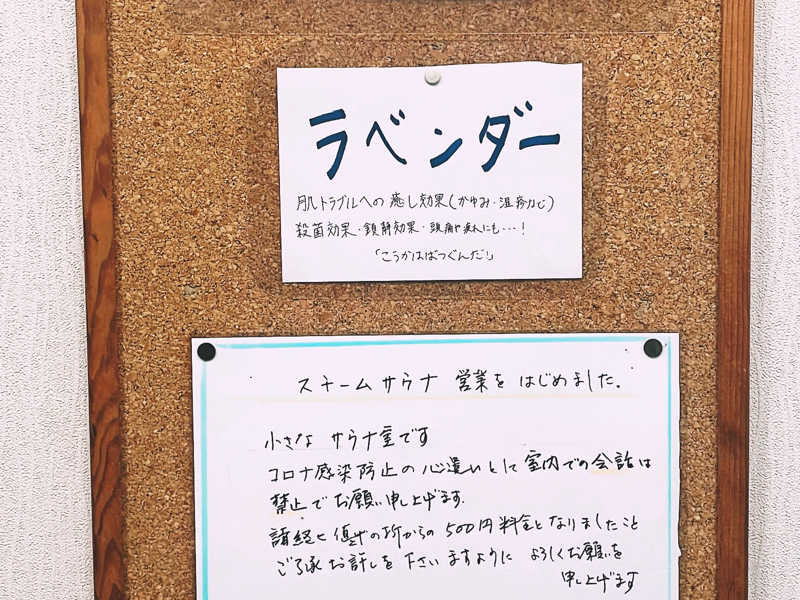 ラベンダー
肌トラブルへの癒し効果(かゆみ・湿疹など)
殺菌効果・鎮静効果・頭痛や疲れにも・・・!
「こうかはばつぐんだ!」
スチームサウナ 営業をはじめました.
小さな サウナ室です
コロナ感染防止の心遣いとして室内での会話は
禁止でお願い申し上げます.
諸経 の所からの 500円料金となりましたこと
ご了承お許しを下さいますように よろしくお願いを
申し上げます